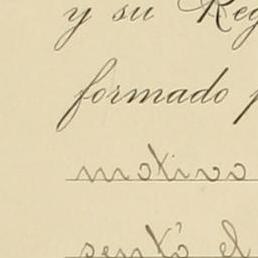 y su Reg
formado p
motivo
sentó el